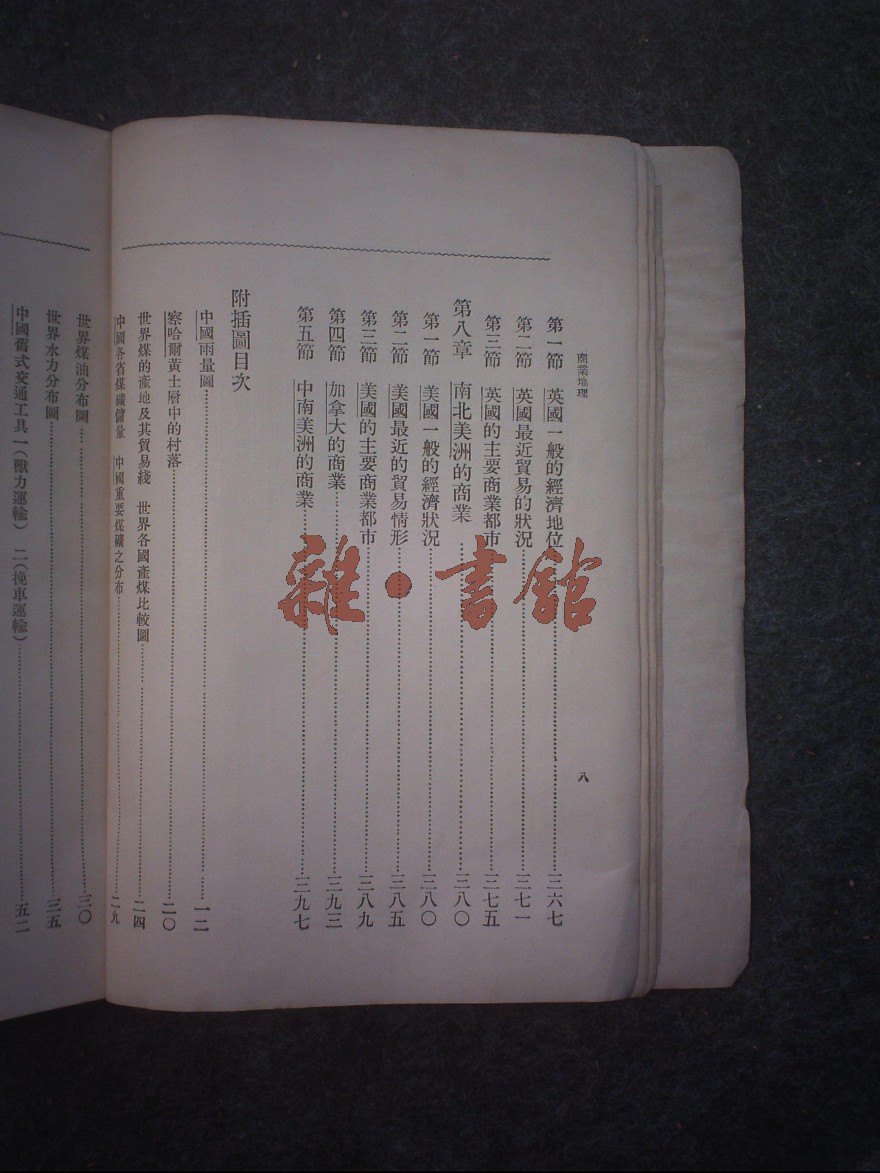 商業地理
八
第一節 英國一般的經濟地位……三六七
第二節 英國最近貿易的狀況……三七一
第三節 英國的主要商業都市……三七五
第八章 南北美洲的商業……三八〇
第一節 美國一般的經濟狀況……三八〇
第二節 美國最近的貿易情形……三八五
第三節 美國的主要商業都市……三八九
第四節 加拿大的商業……三九三
第五節 中南美洲的商業……三九七
附插圖目次
中國雨量圖……一二
察哈爾黃土層中的村落……二〇
世界煤的產地及其貿易綫 世界各國產煤比較圖……二四
中國各省煤礦儲量 中國重要煤礦之分布……二九
世界煤油分布圖……三〇
世界水力分布圖……三五
中國舊式交通工具一(獸力運輸) 二(挽車運輸)……五二
雜·書館